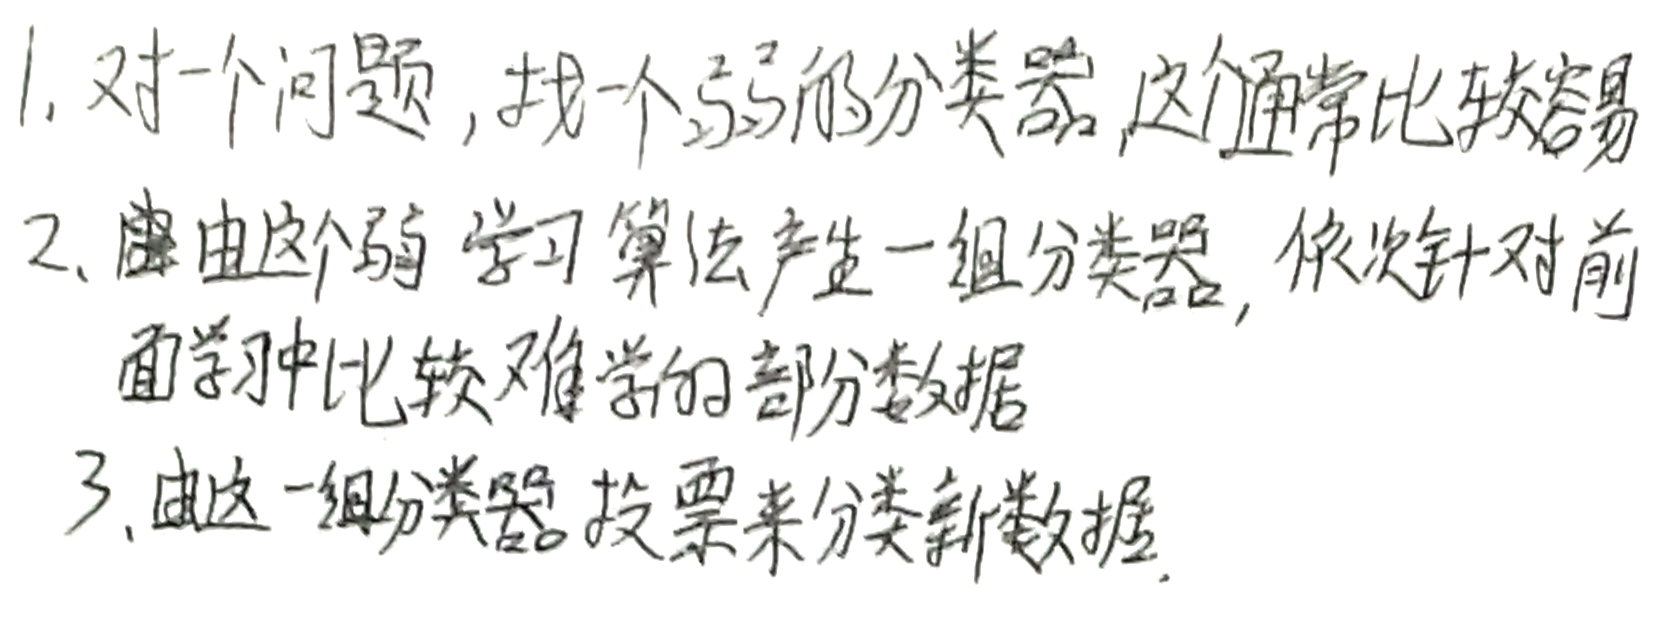 1. 对一个问题,找一个弱的分类器,这个通常比较容易
2、由这个弱学习算法产生一组分类器,依次针对前
面学习中比较难学的部分数据
3、由这一组分类器投票来分类新数据.